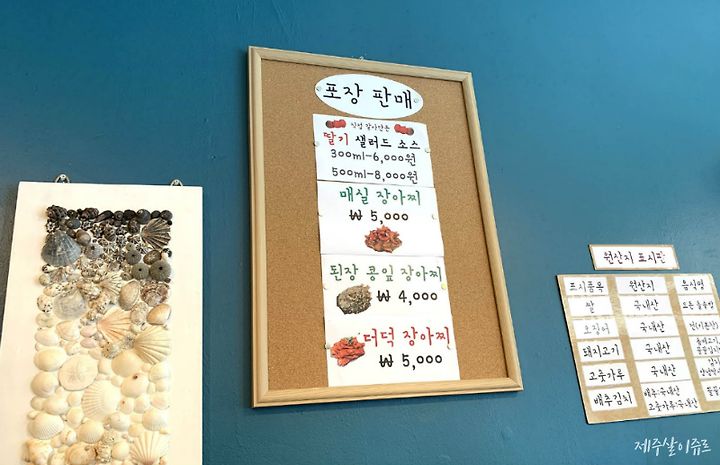 포장 판매
직접 갈아만든
딸기 샐러드 소스
300ml-6,000원
500ml-8,000원
매실 장아찌
₩ 5,000
된장 콩잎 장아찌
₩ 4,000
더덕 장아찌
₩ 5,000
원산지 표시판
표시품목 원산지 음식명
쌀 국내산
오징어 국내산
돼지고기 국내산
고춧가루 국내산
배추김치 배추:국내산
고춧가루:국내산
제주살이쥬르